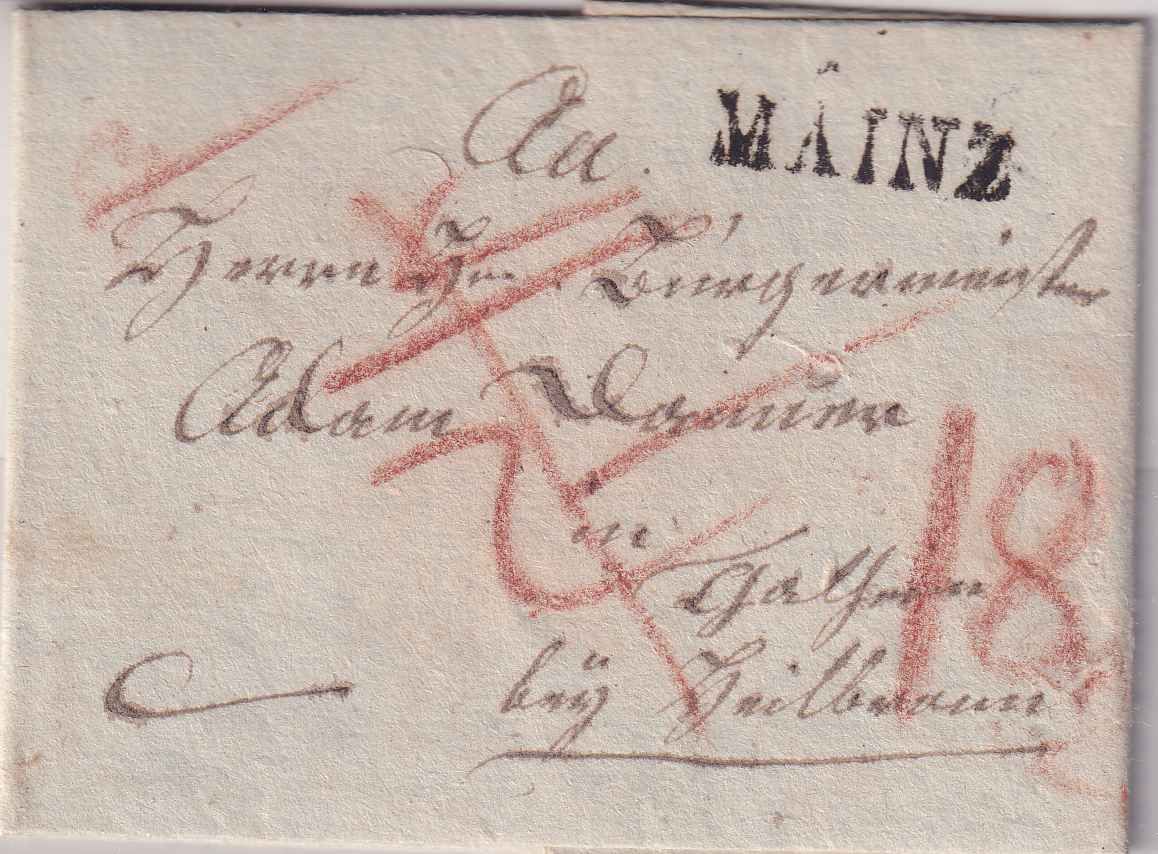 MAINZ
An.
Herrn Hrn. Burgermeister
Adam
in
bey Heilbronn
18